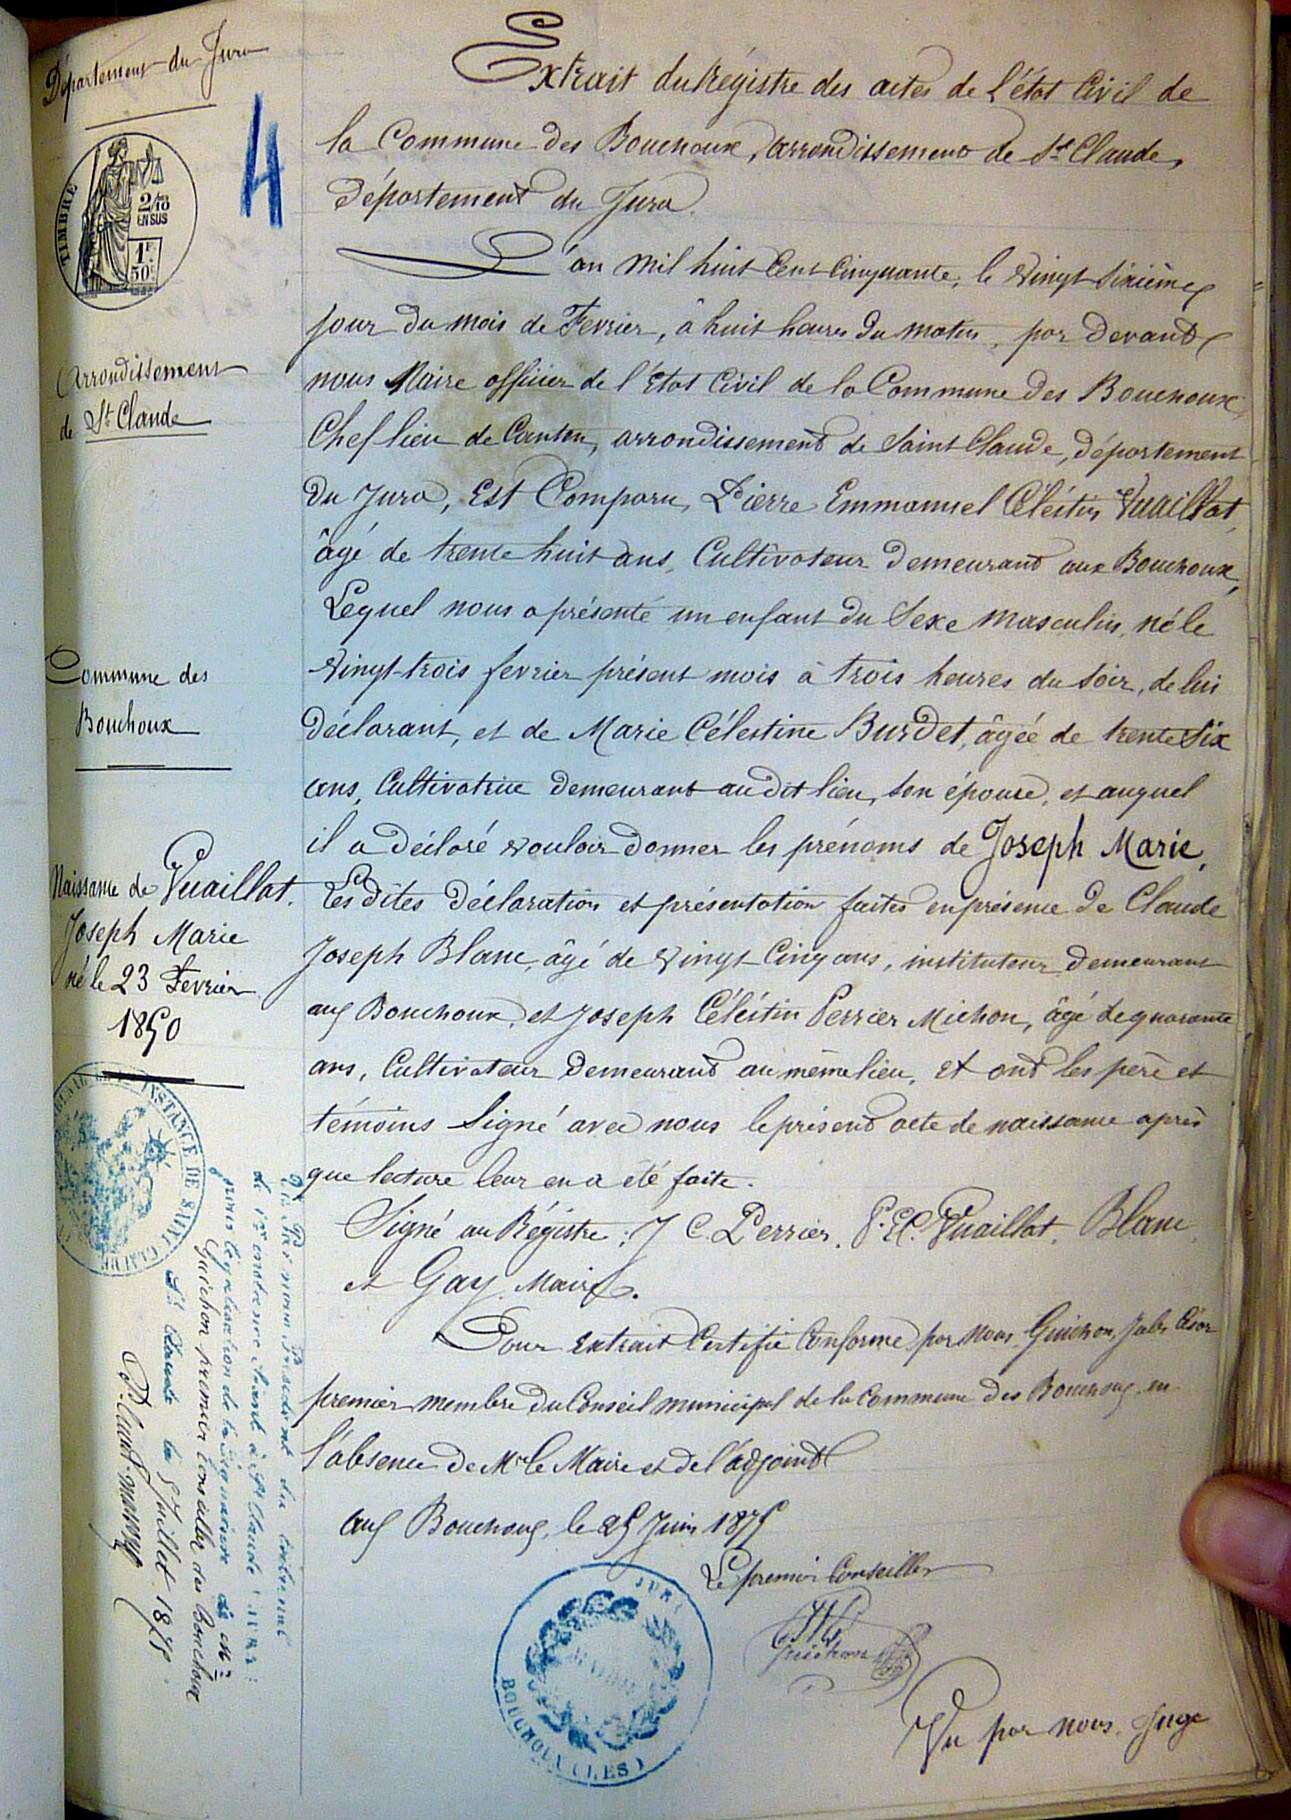 Département du Jura
4
TIMBRE
2/10
EN SUS
1F.
50C.
Arrondissement
de St Claude
Commune des
Bouchoux
Naissance de Vuaillat.
Joseph Marie
né le 23 Fevrier
1850
Extrait du Régistre des actes de l'état Civil de
la Commune des Bouchoux, arrondissement de St Claude,
département du Jura.
L'an mil huit Cent Cinquante, le vingt sixième
jour du mois de Fevrier, à huit heures du matin, par devant
nous Maire officier de l'Etat Civil de la Commune des Bouchoux
Chef lieu de Canton, arrondissement de Saint Claude, département
du Jura, Est Comparu, Pierre Emmanuel Céléstin Vuaillat,
âgé de trente huit ans, Cultivateur demeurant aux Bouchoux,
Lequel nous a présenté un enfant du Sexe Masculin, né le
vingt-trois fevrier présent mois à trois heures du soir, de lui
déclarant, et de Marie Célestine Burdet, âgée de trente Six
ans, Cultivatrice demeurant au dit lieu, son épouse, et auquel
il a déclaré vouloir donner les prénoms de Joseph Marie,
Les dites déclaration et présentation faites en présence de Claude
Joseph Blanc, âgé de vingt Cinq ans, instituteur demeurant
aux Bouchoux, et Joseph Céléstin Perrier Michon, âgé de quarante
ans, Cultivateur demeurant au même lieu, et ont les père et
témoins Signé avec nous le présent acte de naissance après
que lecture leur en a été faite.
Signé au Régistre: J C. Perrier, P. E C. Vuaillat, Blanc,
et Gay, Maire.
Pour extrait Certifié Conforme par Nous Guichon, Jules César
premier membre du Conseil municipal de la commune des Bouchoux, en
l'absence de Mr le Maire et de l'adjoint
aux Bouchoux, le 25 Juin 1875
Le premier Conseiller
Guichon
JURA
MAIRIE
BOUCHOUX (LES)
Vu par nous, Juge
INSTANCE DE SAINT CLAUDE
Vu par nous, Président du tribunal
de 1re instance séant à St Claude
pour légalisation de la signature de Mr
Guichon premier Conseiller des Bouchoux
St Claude le 5 Juillet 1875